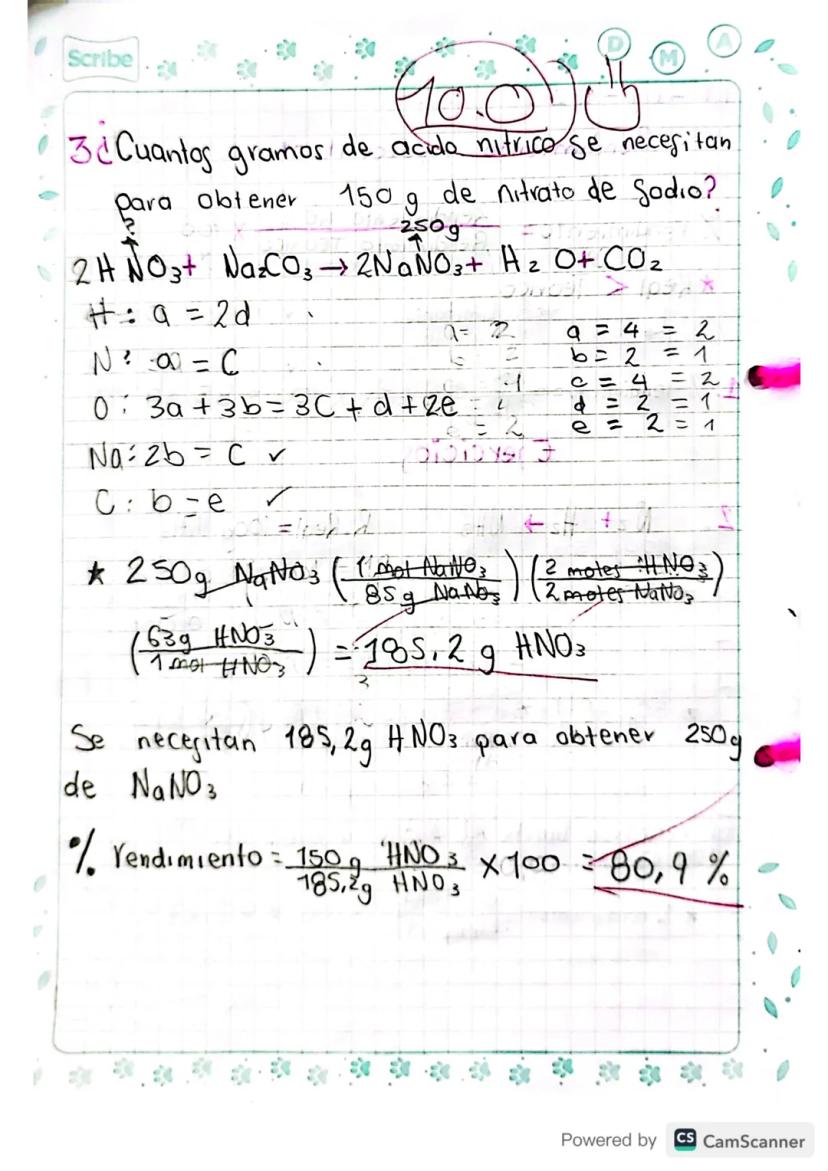 Scribe
D M A
10.0
3¿Cuantos gramos de acido nitrico se necesitan
para obtener 150 g de nitrato de Sodio?
? 250g
2HNO3+ Na2CO3→2NaNO3+ H2O+CO2
H: a = 2d
N: a = C
O: 3a+3b=3C+d+2e
Na:2b = C ✓
C: b=e ✓
a = 4 = 2
b = 2 = 1
c = 4 = 2
d = 2 = 1
e = 2 = 1
★ 250g NaNO3 (1 mol NaNO3 / 85g NaNO3) (2 moles HNO3 / 2 moles NaNO3)
(63g HNO3 / 1 mol HNO3) = 185,2 g HNO3
Se necesitan 185,2g HNO3 para obtener 250g
de NaNO3
% Rendimiento = 150g HNO3 / 185,2g HNO3 X100 = 80,9 %
Powered by CS CamScanner